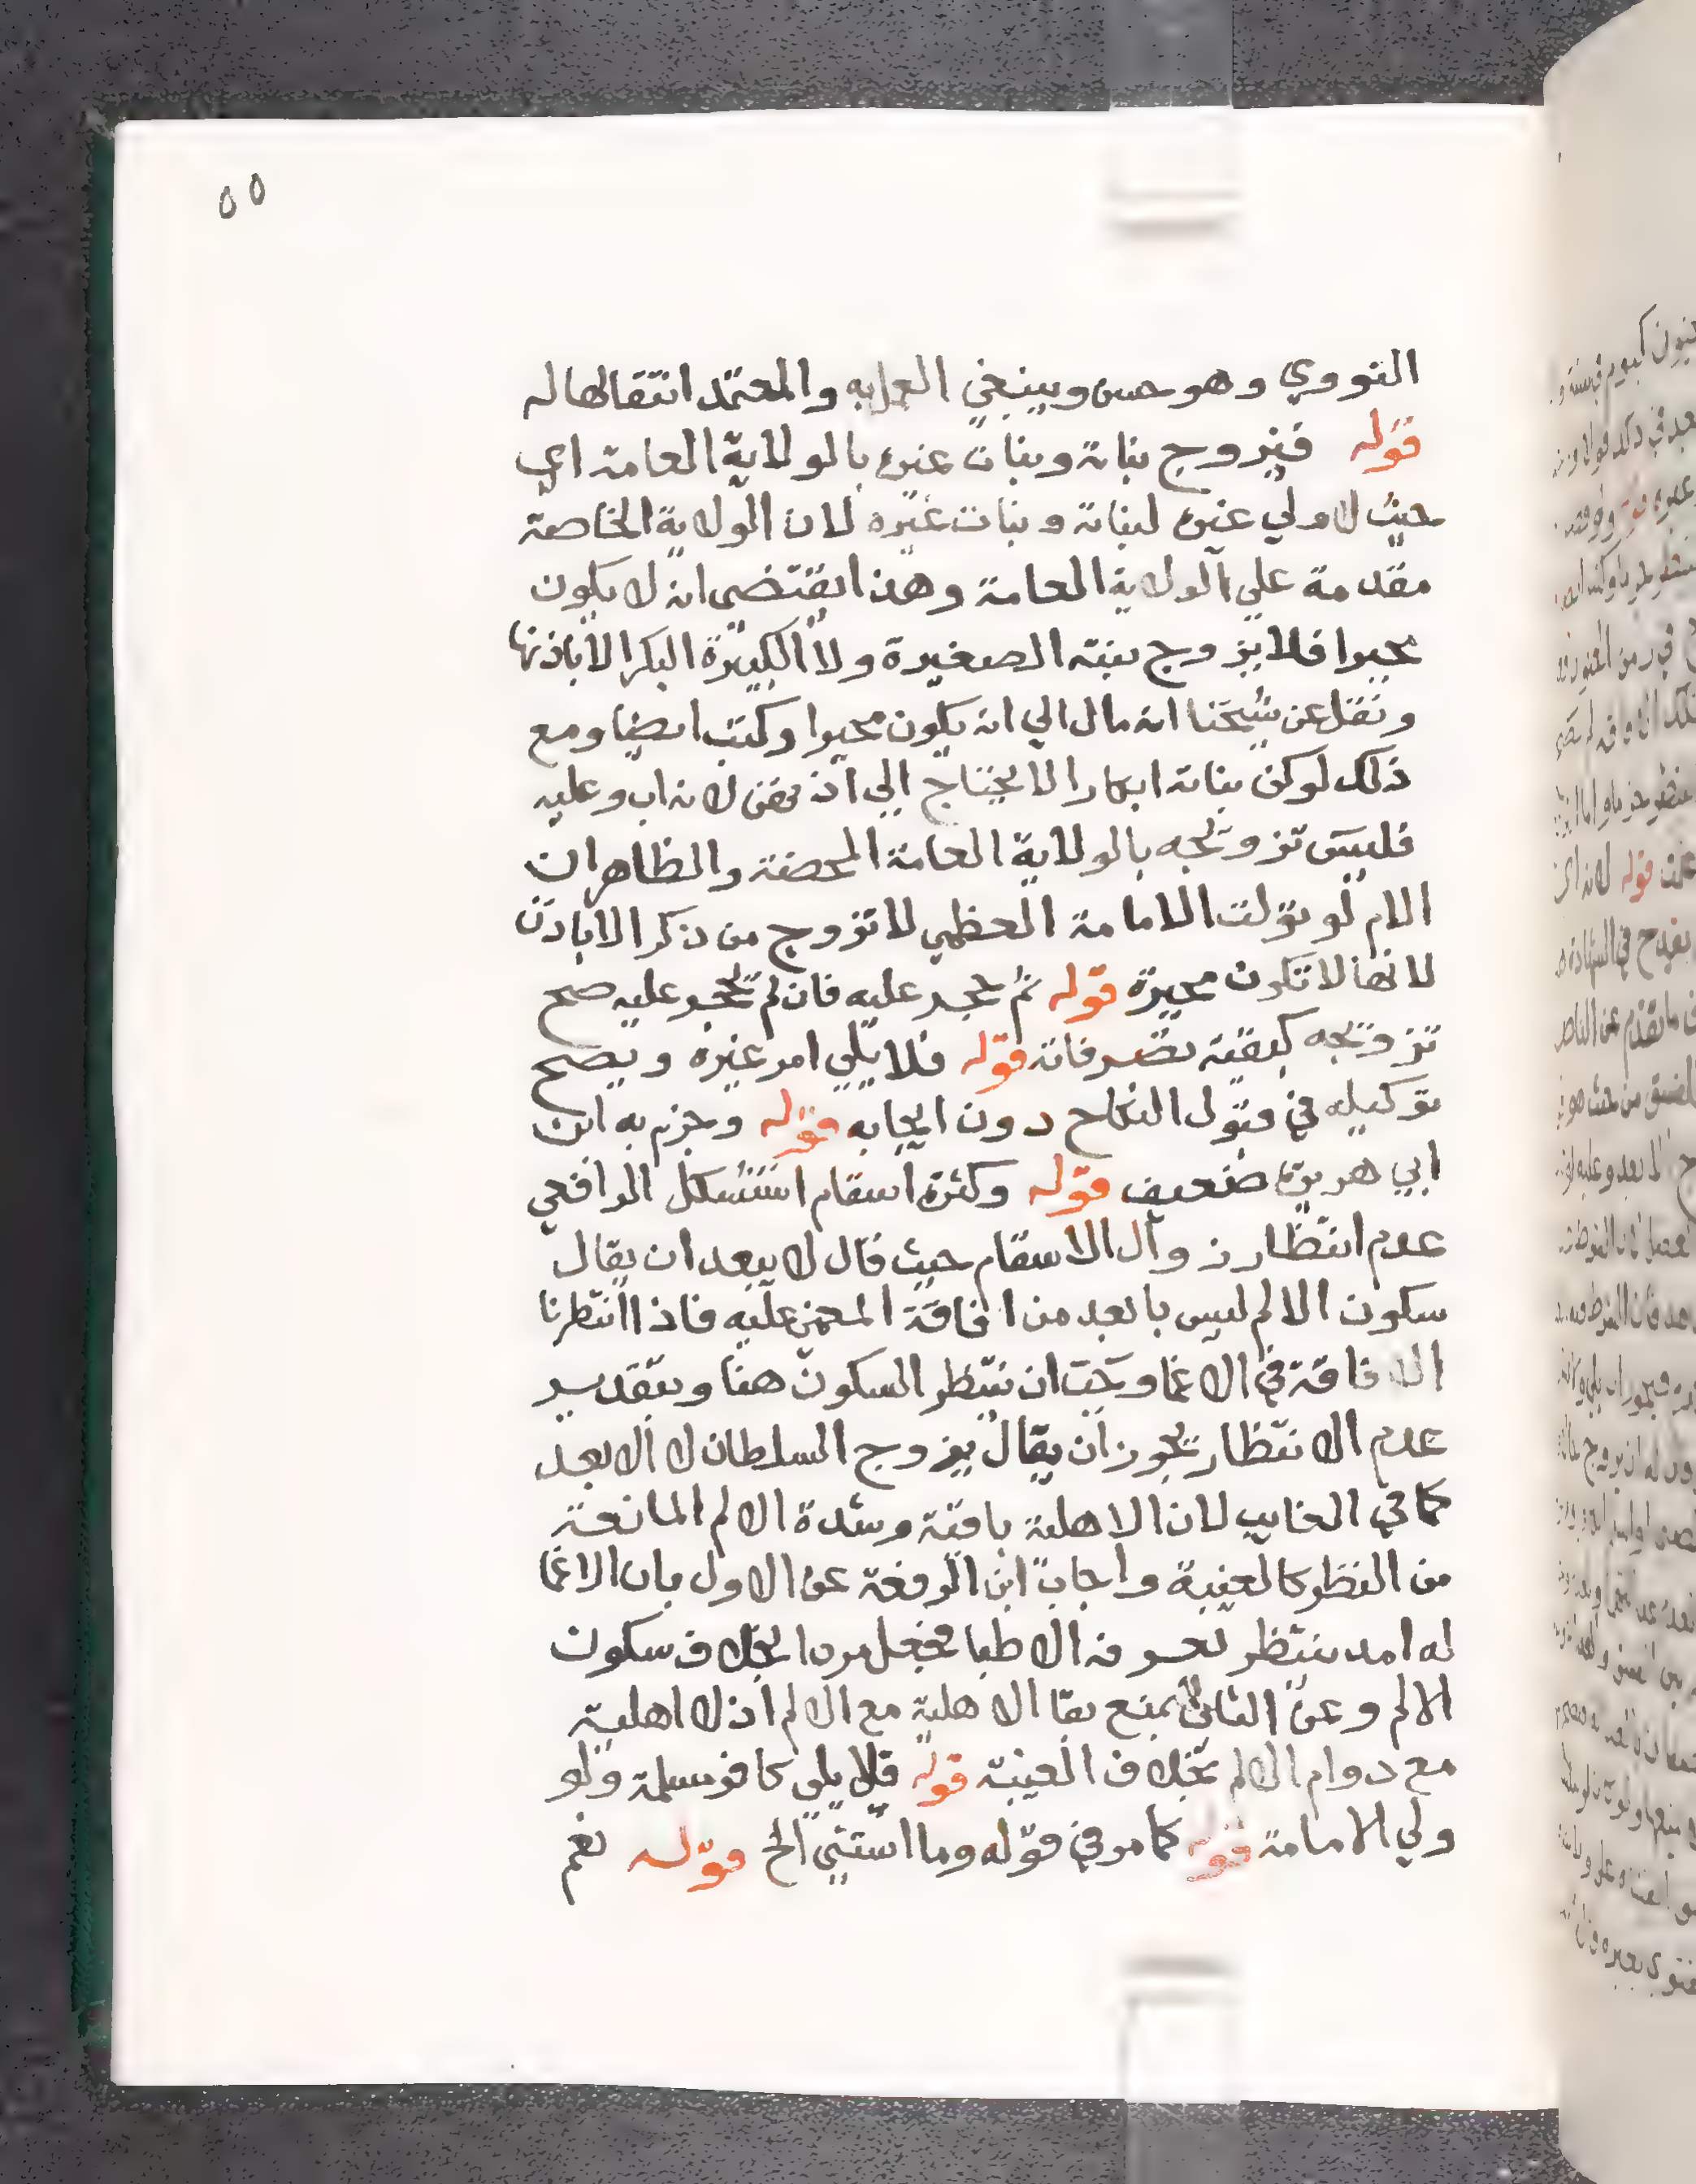 ٥٥
النووي وهو حسن وينبغي العمل به والمعتمد انتقالها له
قوله فيزوج بناته وبنات غيره بالولاية العامة اي
حيث لا ولي غيره لبناته وبنات غيره لان الولاية الخاصة
مقدمة علي الولاية العامة وهذا يقتضي انه لا يكون
مجبرا فلا يزوج بنته الصغيرة ولا الكبيرة البكر الا باذنها
ونقل عن شيخنا انه مال الي انه يكون مجبرا وكتب ايضا ومع
ذلك لو كن بناته ابكارا لا يحتاج الي اذنهن لانه اب وعليه
فليس تزويجه بالولاية العامة المحضة والظاهر ان
الام لو تولت الامامة العظمي لا تزوج من ذكر الا باذن
لانها لا تكون مجبرة قوله ثم حجر عليه فان لم يحجر عليه صح
تزويجه كبقية تصرفاته قوله فلا يلي امر غيره ويصح
توكيله في قبول النكاح دون ايجابه قوله وجزم به ابن
ابي هريرة ضعيف قوله وكثرة اسقام استشكل الرافعي
عدم انتظار زوال الاسقام حيث قال لا يبعد ان يقال
سكون الالم ليس بابعد من افاقة المغمي عليه فاذا انتظرنا
الافاقة في الاغما وجب ان ننتظر السكون هنا وبتقدير
عدم الانتظار يجوز ان يقال يزوج السلطان لا الابعد
كما في الغايب لان الاهلية باقية وشدة الالم المانعة
من النظر كالغيبة واجاب ابن الرفعة عن الاول بان الاغما
له امد ينتظر يعرفه الاطبا فجعل مردا بخلاف سكون
الالم وعن الثاني بمنع بقا الاهلية مع الالم اذ لا اهلية
مع دوام الالم بخلاف الغيبة قوله فلا يلي كافر مسلمة ولو
ولي الامامة قوله كما مر في قوله وما استثني الخ قوله نعم